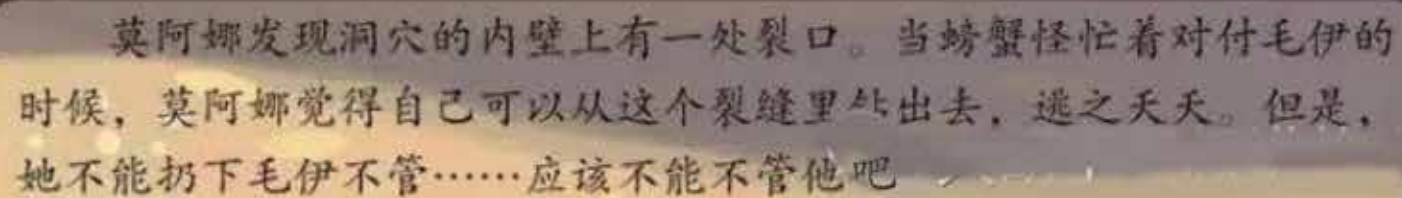 莫阿娜发现洞穴的内壁上有一处裂口。当螃蟹怪忙着对付毛伊的
时候，莫阿娜觉得自己可以从这个裂缝里出去，逃之夭夭。但是，
她不能扔下毛伊不管……应该不能不管他吧